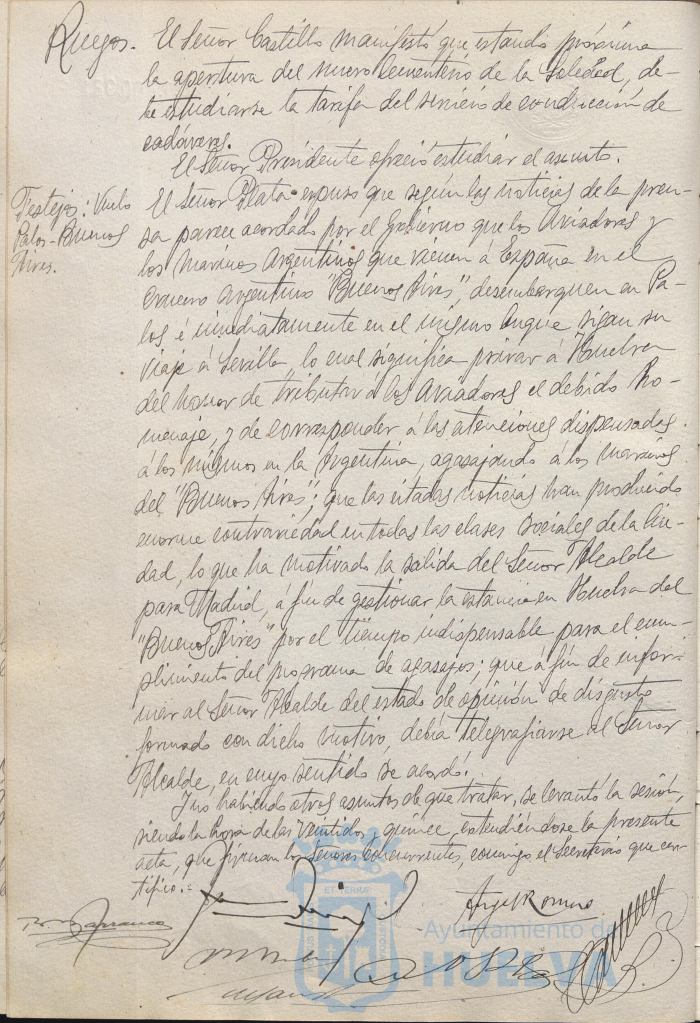 Ruegos.
El Señor Castillo manifestó que estando próxima
la apertura del nuevo Cementerio de la Soledad, de-
be estudiarse la tarifa del servicio de conducción de
cadáveres.
El Señor Presidente ofreció estudiar el asunto.
Festejos: Vuelo
Palos-Buenos
Aires.
El Señor Plata expuso que según las noticias de la pren-
sa parece acordado por el Gobierno que los Aviadores y
los Marinos Argentinos que vienen á España en el
crucero Argentino "Buenos Aires", desembarquen en Pa-
los é inmediatamente en el mismo buque sigan su
viaje á Sevilla, lo cual significa privar á Huelva
del honor de tributar á los Aviadores el debido ho-
menaje, y de corresponder á las atenciones dispensadas
á los mismos en la Argentina, agasajando á los marinos
del "Buenos Aires"; que las citadas noticias han producido
enorme contrariedad en todas las clases sociales de la Ciu-
dad, lo que ha motivado la salida del Señor Alcalde
para Madrid, á fin de gestionar la estancia en Huelva del
"Buenos Aires" por el tiempo indispensable para el cum-
plimiento del programa de agasajos; que á fin de infor-
mar al Señor Alcalde del estado de opinión de disgusto
formado con dicho motivo, debía telegrafiarse al Señor
Alcalde, en cuyo sentido se acordó.
Y no habiendo otros asuntos de que tratar, se levantó la sesión,
siendo la hora de las veintidos y quince, extendiéndose la presente
acta, que firman los Señores Concurrentes, conmigo el Secretario que cer-
tifico.=
Barranco
Angel Romero
ET TERRÆ
Ayuntamiento de
HUELVA